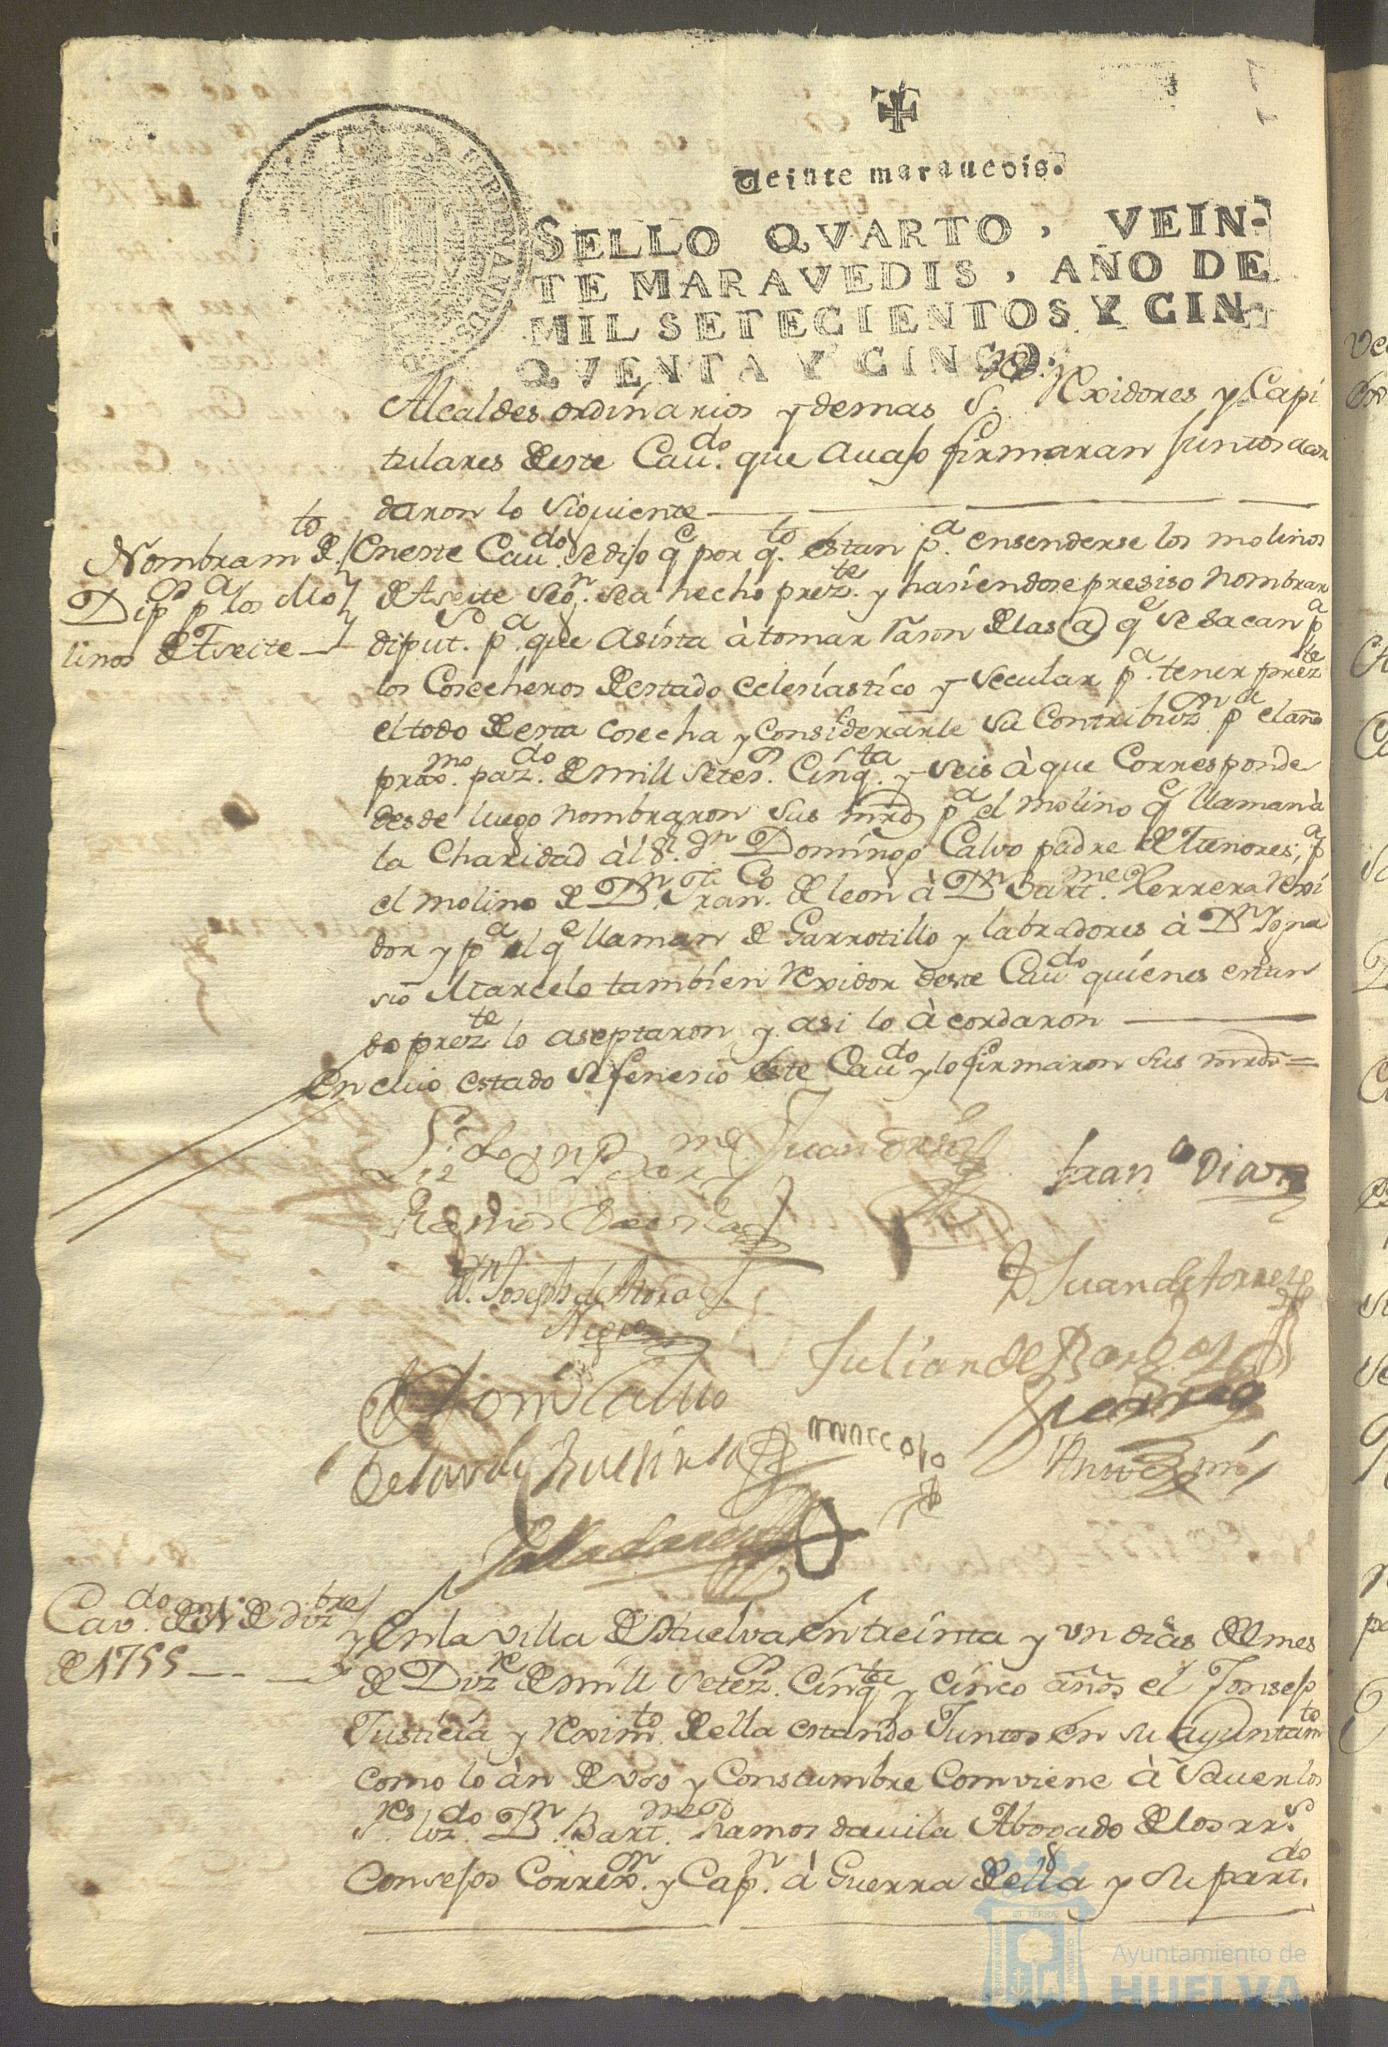 Veinte maravedis.
SELLO QVARTO, VEIN-
TE MARAVEDIS, AÑO DE
MIL SETECIENTOS Y CIN-
QVENTA Y CINCO.
Alcaldes ordinarios y demas S.res Rexidores y Capi
tulares deste Cav.do que avajo firmaran Juntos acor
daron lo siguiente
Nombram.to de
Dip.os p.a los Mo
linos de Aseite
En este Cav.do se dijo q.e por q.to estan p.a ensenderse los molinos
de Aseite seg.n sea hecho prez.te y hasiendose presiso nombrar
diput.do p.a que asista à tomar rason de las @ q.e se sacan p.a
los Cosecheros de estado eclesiastico y secular p.a tener prez.te
el todo de esta cosecha y considerarle su Contribuz.on p.a el año
prox.mo paz.do de mill setez.os Cinq.ta y seis à que Corresponde
desde luego nombraron sus mrds p.a el molino q.e llaman à
la Charidad àl S.r D.n Domingo Calvo padre de Menores, p.a
el molino de D.n Fran.co de leon à D.n Bart.me Herrera Rexi
dor y p.a el q.e llaman de Garrotillo y labradores à D.n Ygna
sio Marcelo tambien Rexidor deste Cav.do quienes estan
do prez.te lo aseptaron y asi lo àcordaron
En cuio estado se fenesio este Cav.do y lo firmaron sus mrds =
Fran.co Diaz
D.n Joseph de Mora
Negron
D Juan de Torres
Julian de
Dom.o Calvo
Marcelo
Ante mi
Valladares
Cav.do de 31 de Diz.bre
de 1755
En la villa de Huelva en treinta y un dias del mes
de Diz.re de mill setez.os Cinq.ta y cinco años el Consejo
Justicia y Rexim.to della estando Juntos en su ayuntam.to
como lo àn de uso y Constumbre Comviene à Saver los
S.res lizdo D.n Bart.me Ramos davila Abogado de los rr.s
Consejos Correx.or y Cap.n à Guerra de ella y su part.do
Ayuntamiento de
HUELVA